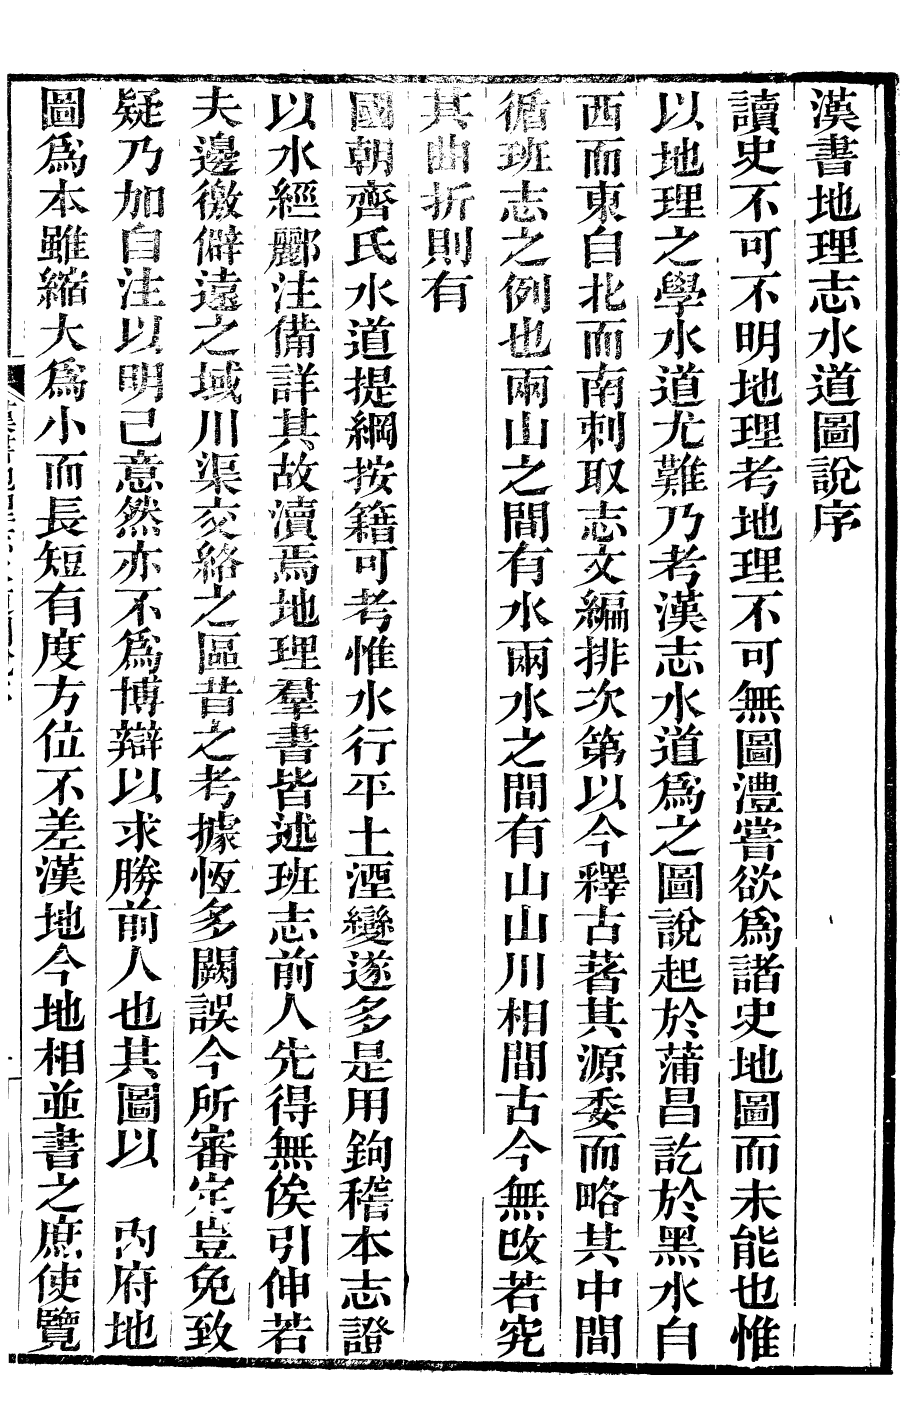 漢書地理志水道圖說序
讀史不可不明地理考地理不可無圖澧嘗欲爲諸史地圖而未能也惟
以地理之學水道尤難乃考漢志水道爲之圖說起於蒲昌訖於黑水自
西而東自北而南刺取志文編排次第以今釋古著其源委而略其中間
循班志之例也兩山之間有水兩水之間有山山川相間古今無改若究
其曲折則有
國朝齊氏水道提綱按籍可考惟水行平土湮變遂多是用鉤稽本志證
以水經酈注備詳其故瀆焉地理羣書皆述班志前人先得無俟引伸若
夫邊徼僻遠之域川渠交絡之區昔之考據恆多闕誤今所審定豈免致
疑乃加自注以明己意然亦不爲博辯以求勝前人也其圖以　內府地
圖爲本雖縮大爲小而長短有度方位不差漢地今地相並書之庶使覽